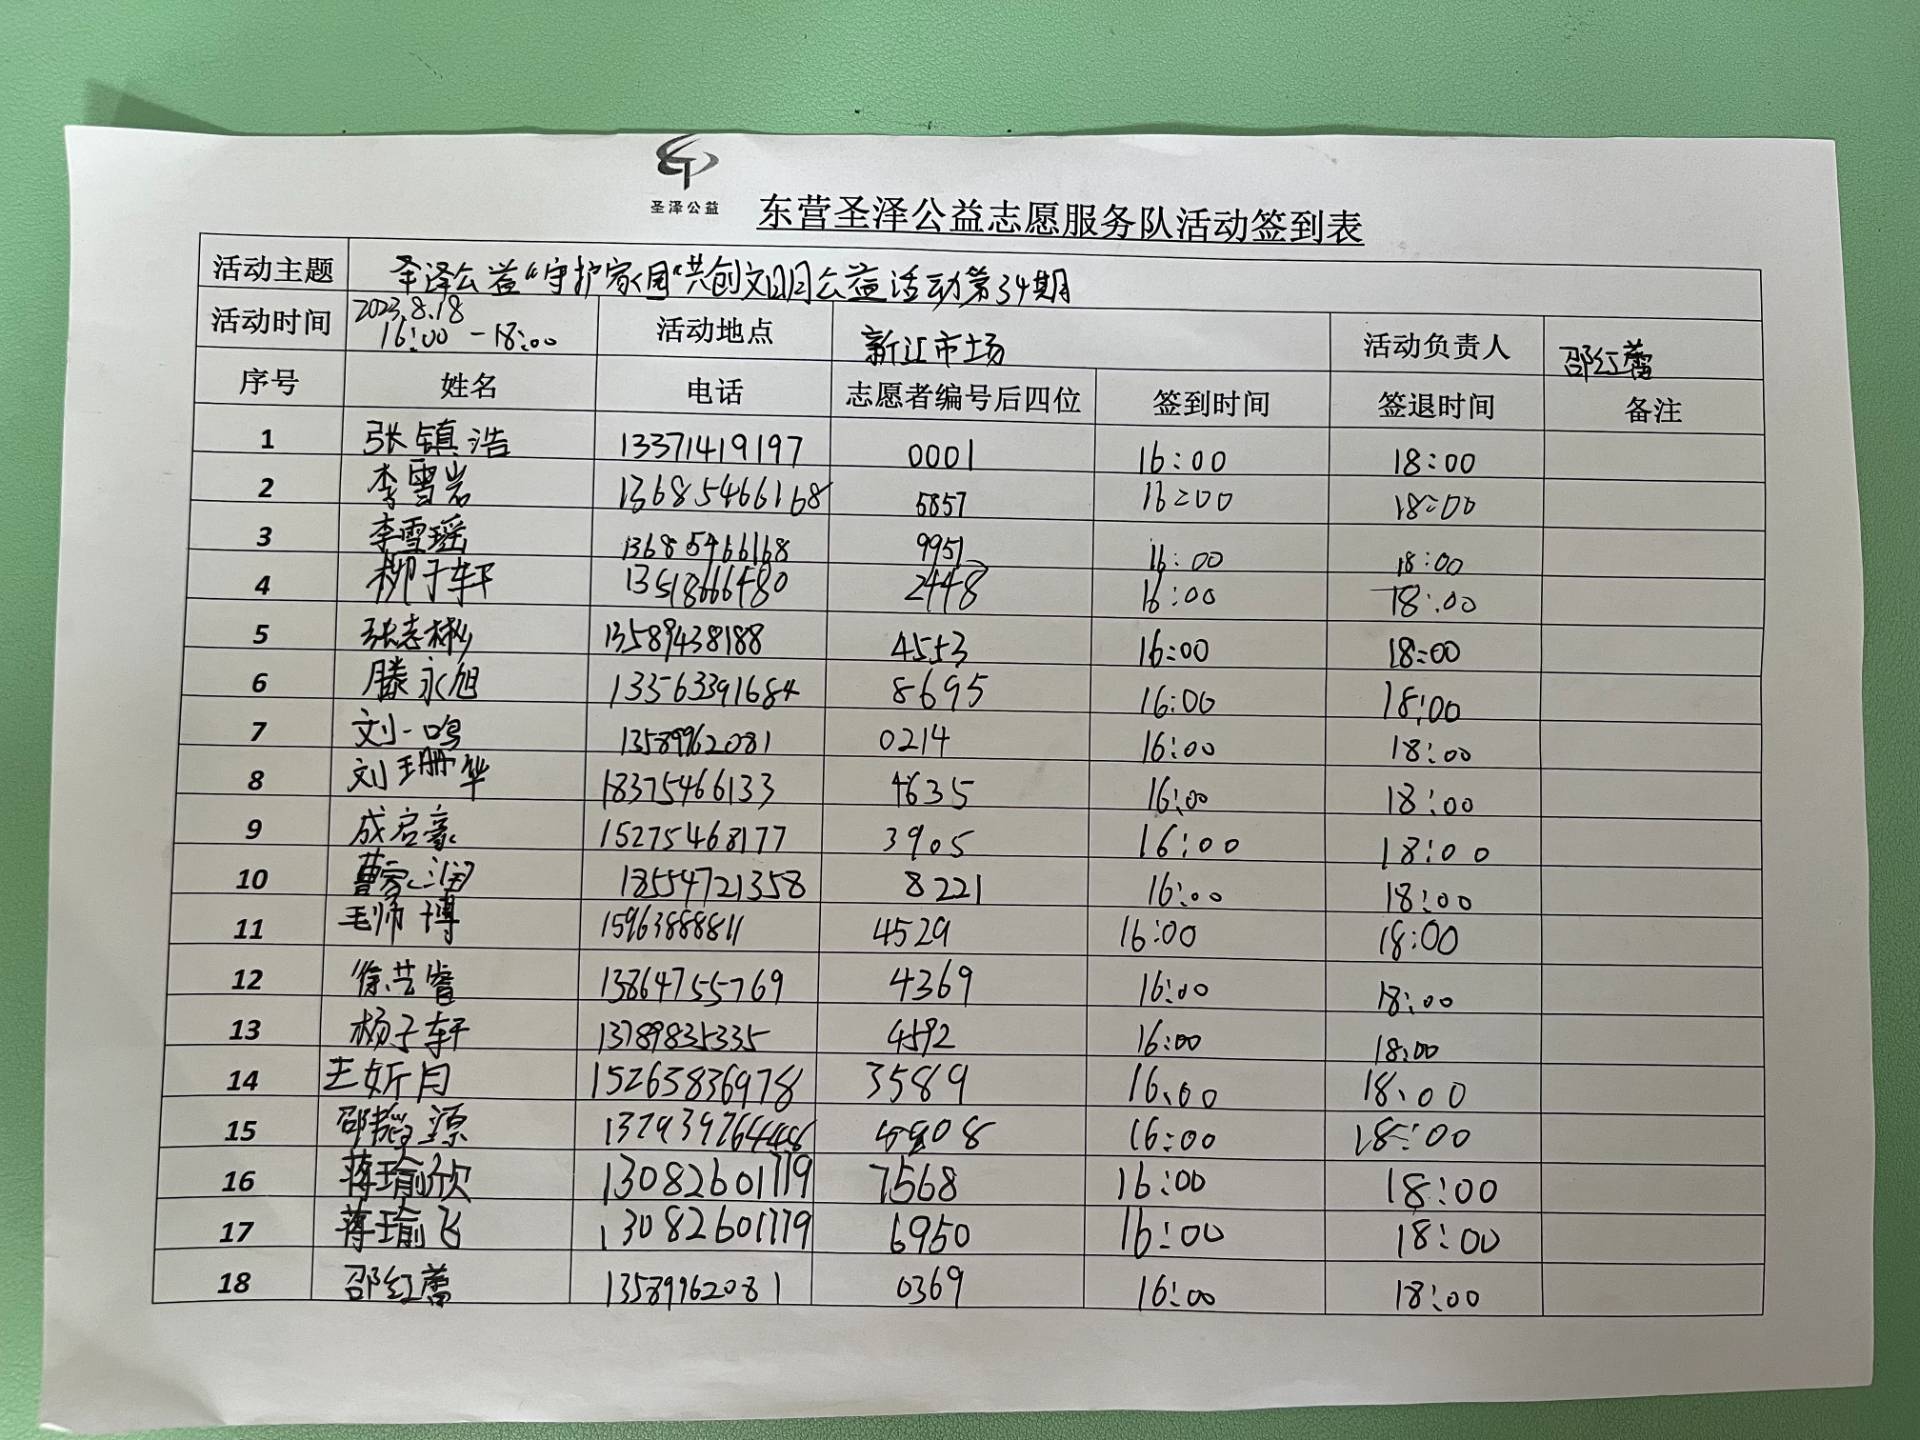 圣泽公益
东营圣泽公益志愿服务队活动签到表
活动主题 圣泽公益“守护家园“共创文明公益活动第34期
活动时间 2023.8.18 16:00-18:00 活动地点 新江市场 活动负责人 邵红蕾
序号 姓名 电话 志愿者编号后四位 签到时间 签退时间 备注
1 张镇浩 13371419197 0001 16:00 18:00
2 李雪岩 13685466168 5857 16:00 18:00
3 李雪瑶 13685466168 9951 16:00 18:00
4 柳子轩 13518666480 2448 16:00 18:00
5 张志彬 13589438188 4553 16:00 18:00
6 滕永旭 133563391684 8695 16:00 18:00
7 刘一鸣 13589962081 0214 16:00 18:00
8 刘珊华 18375466133 4635 16:00 18:00
9 成启豪 15275468177 3905 16:00 18:00
10 曹家润 18554721358 8221 16:00 18:00
11 毛师博 15963888811 4529 16:00 18:00
12 徐芸睿 13864755769 4369 16:00 18:00
13 杨子轩 13789835335 4592 16:00 18:00
14 王妡月 15263836978 3589 16.00 18.00
15 邵 源 16:00 18:00
16 蒋瑜欣 13082601779 7568 16:00 18:00
17 蒋瑜飞 13082601779 6950 16:00 18:00
18 邵红蕾 13589962081 0369 16:00 18:00